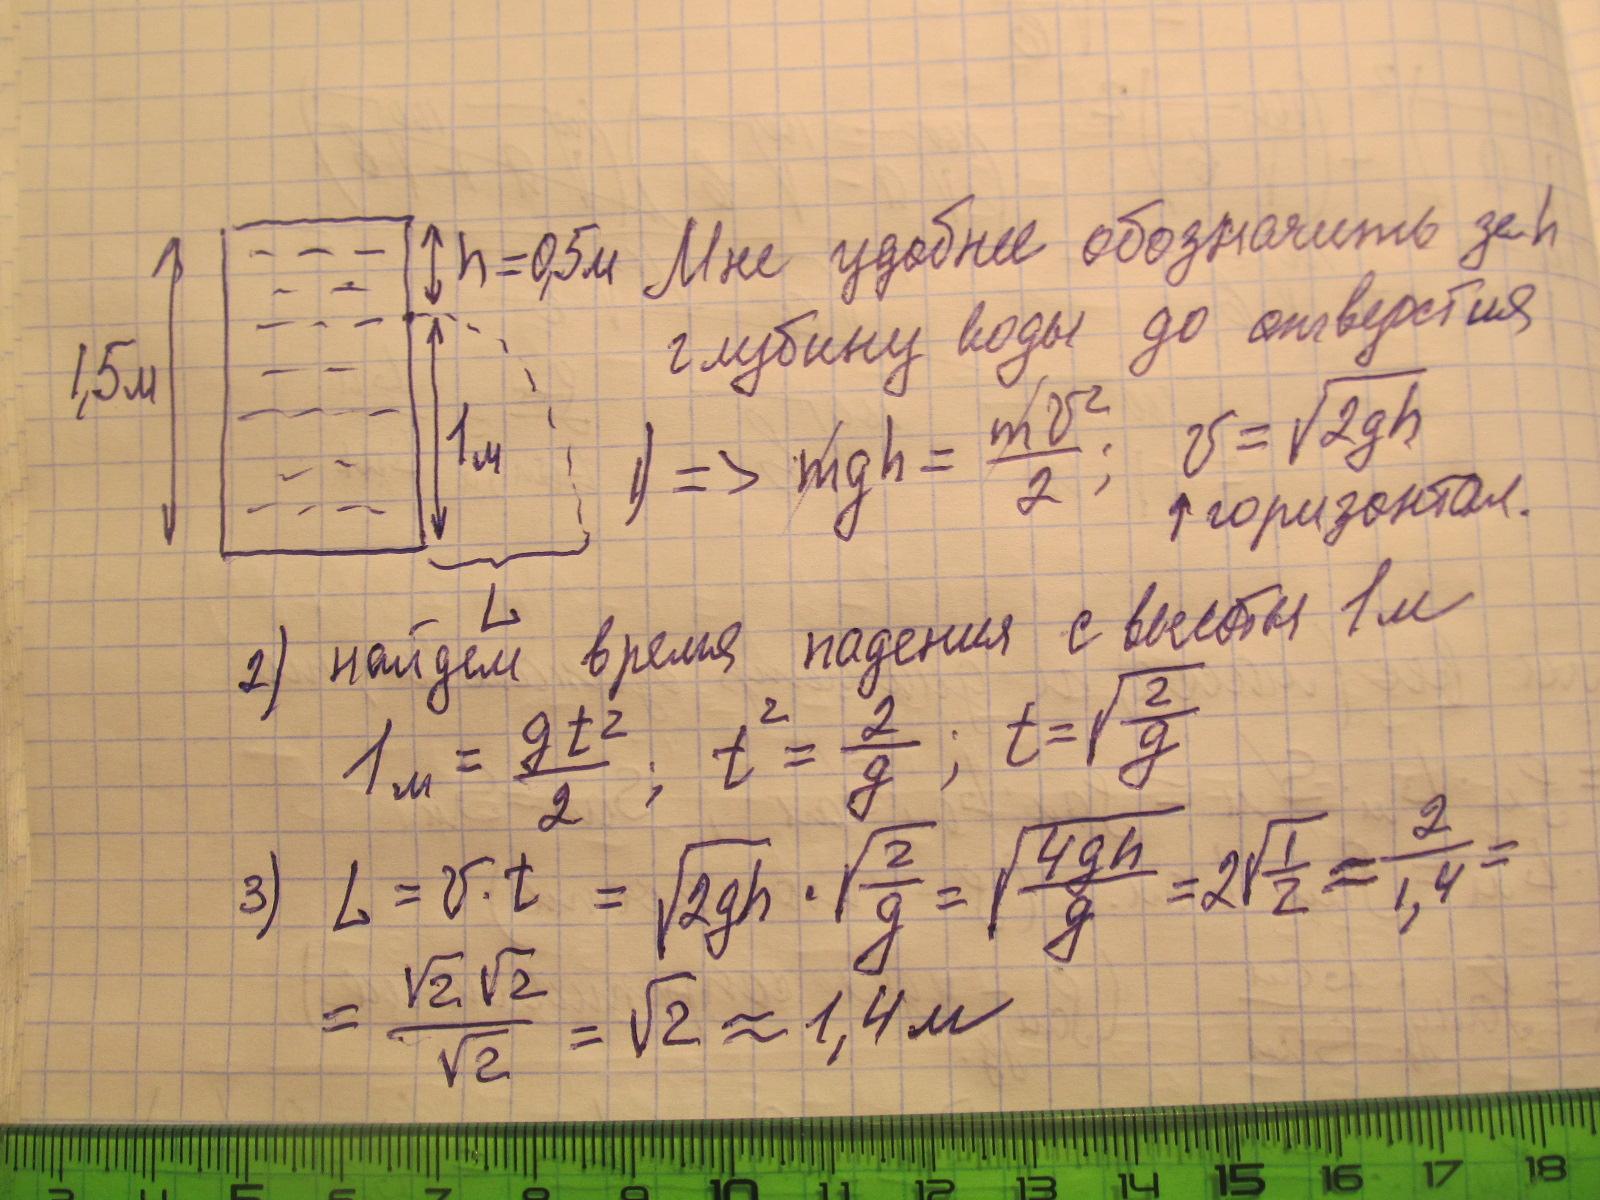 1,5м
h=0,5м
1м
L
Мне удобнее обозначить за h
глубину воды до отверстия
1) => mgh = mv²/2; v = √2gh
↑ горизонтал.
2) найдем время падения с высоты 1м
1м = gt²/2; t² = 2/g; t = √2/g
3) L = v·t = √2gh · √2/g = √4gh/g = 2√1/2 ≈ 2/1,4 =
= √2 √2/√2 = √2 ≈ 1,4м
3 4 5 6 7 8 9 10 11 12 13 14 15 16 17 18